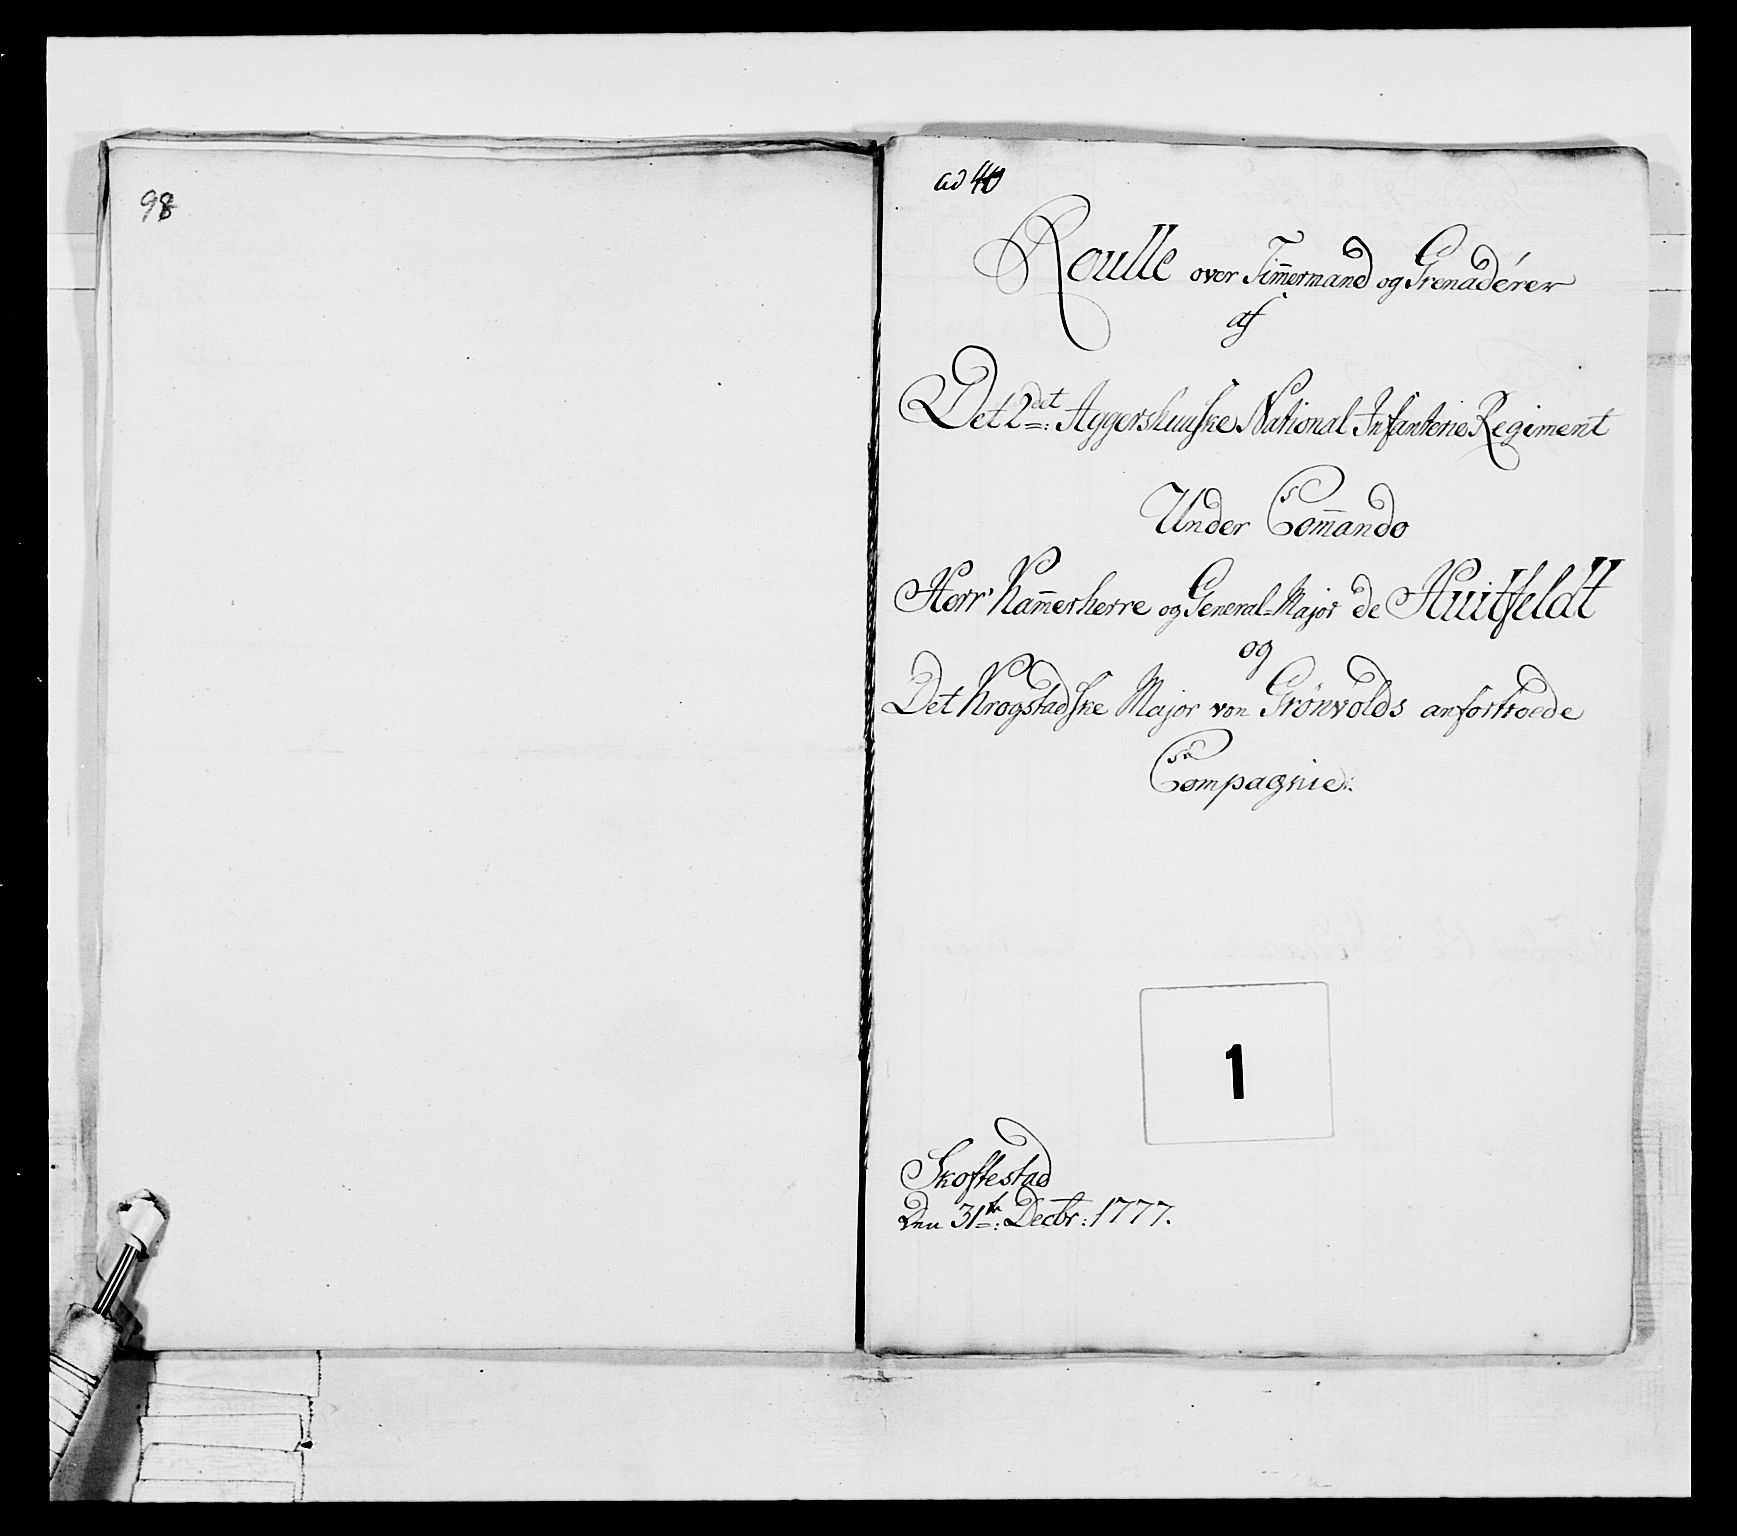 98
ad 40
Roulle over Tim̅ermand og Grenadérer
af
Det 2det: Aggershuuske National Infanterie Regiment
Under Com̅ando
Herr Kam̅erherre og General-Major de Huitfeldt
og
Det Krogstadske Major von Grönvolds anfortroede
Compagnie:
1
Skoftestad
Den 31te: Decbr: 1777.